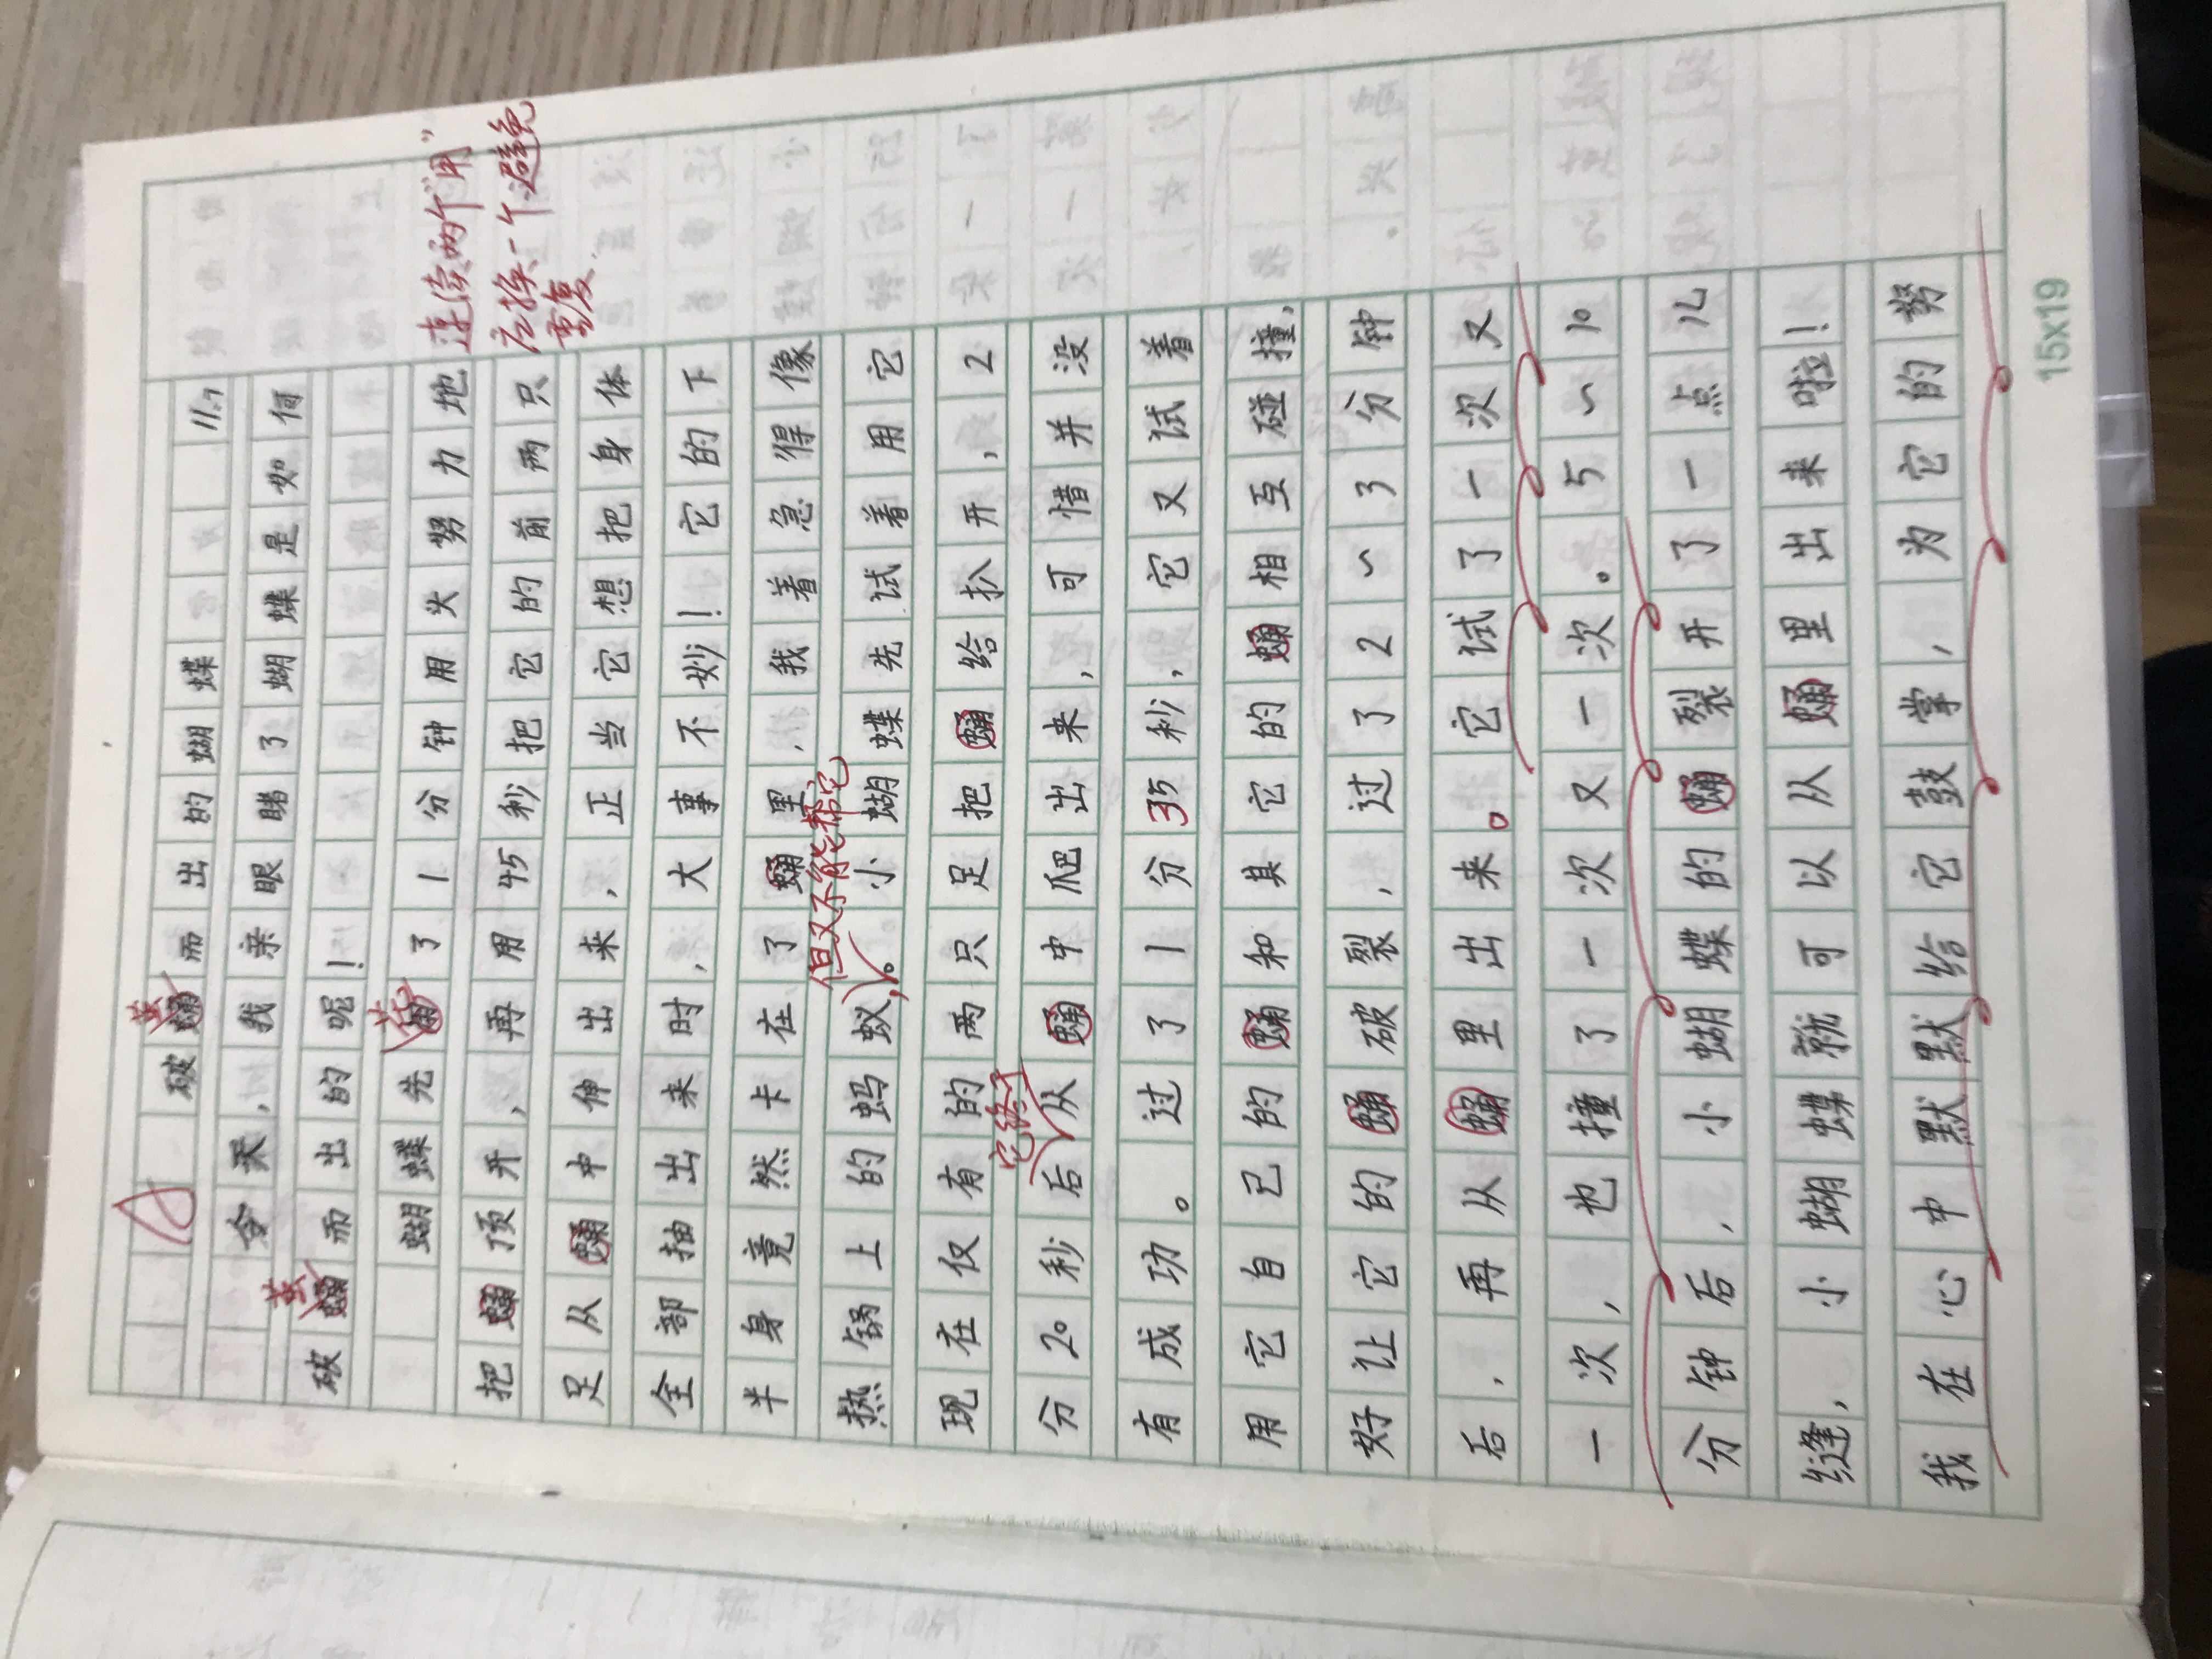 A
茧
破蛹而出的蝴蝶 11.7
今天，我亲眼睹了蝴蝶是如何
茧
破蛹而出的呢！
花
蝴蝶先用了1分钟用头努力地
连续两个“用”
把蛹顶开，再用45秒把它的前两只
应换一个，避免
足从蛹中伸出来，正当它想把身体
重复.
全部抽出来时，大事不妙！它的下
半身竟然卡在了蛹里，我着急得像
但又不能帮它
热锅上的蚂蚁，。小蝴蝶先试着用它
现在仅有的两只足把蛹给扒开，2
它终于
分20秒后从蛹中爬出来，可惜并没
有成功。过了1分35秒，它又试着
用它自己的蛹和其它的蛹相互碰撞，
好让它的蛹破裂，过了2~3分钟
后，再从蛹里出来。它试了一次又
一次，也撞了一次又一次。5~10
分钟后，小蝴蝶的蛹裂开了一点儿
缝，小蝴蝶就可以从蛹里出来啦！
我在心中默默给它鼓掌，为它的努
15x19